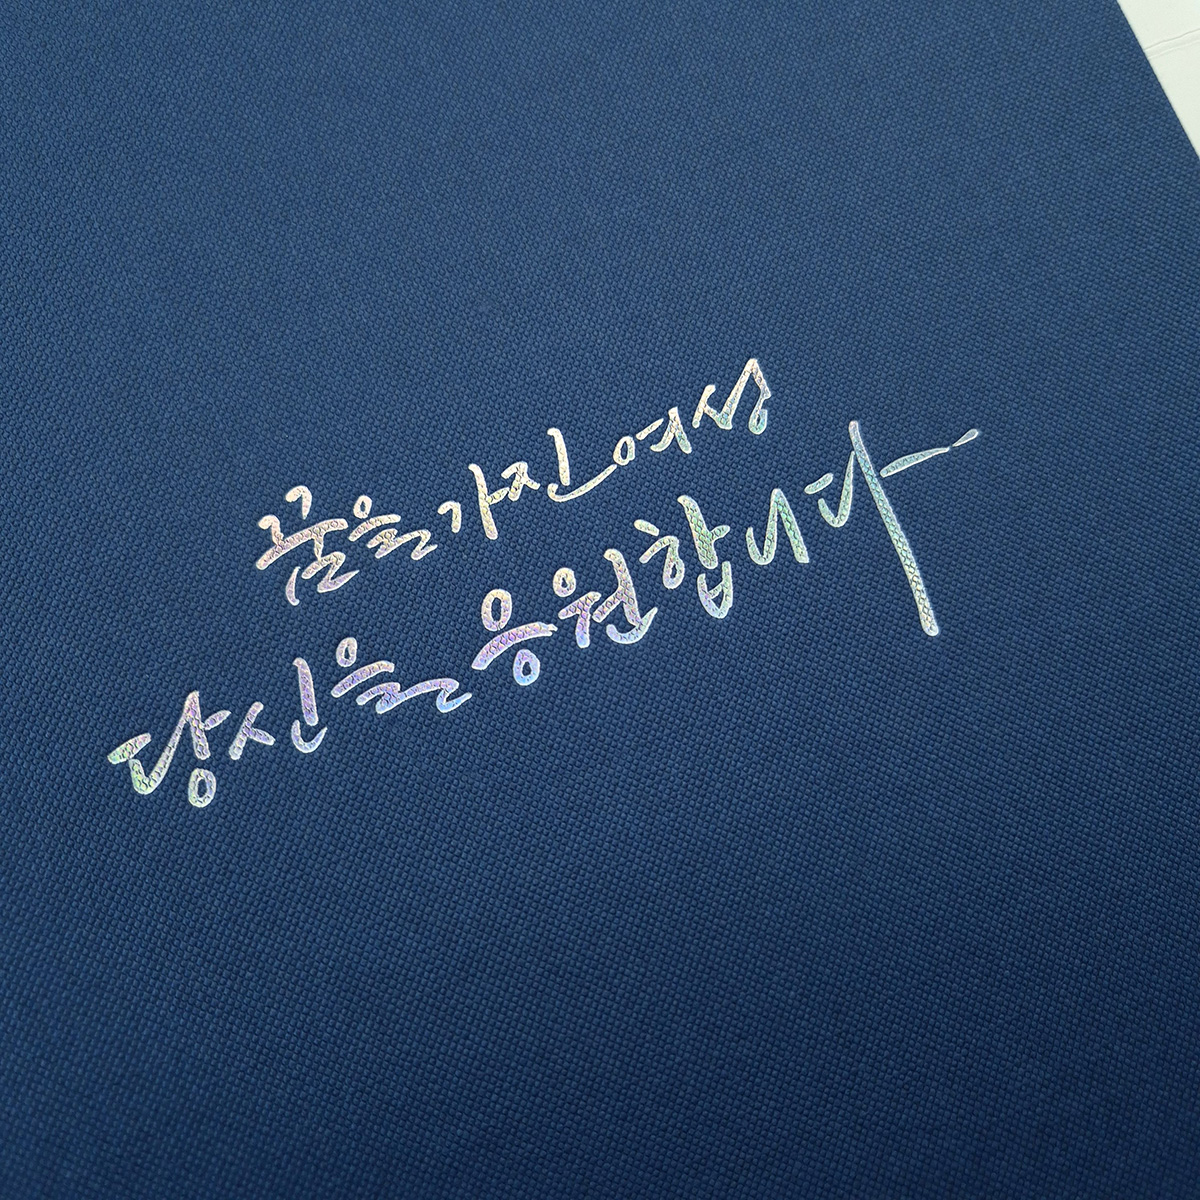 꿈을 가진 여성
당신을 응원합니다